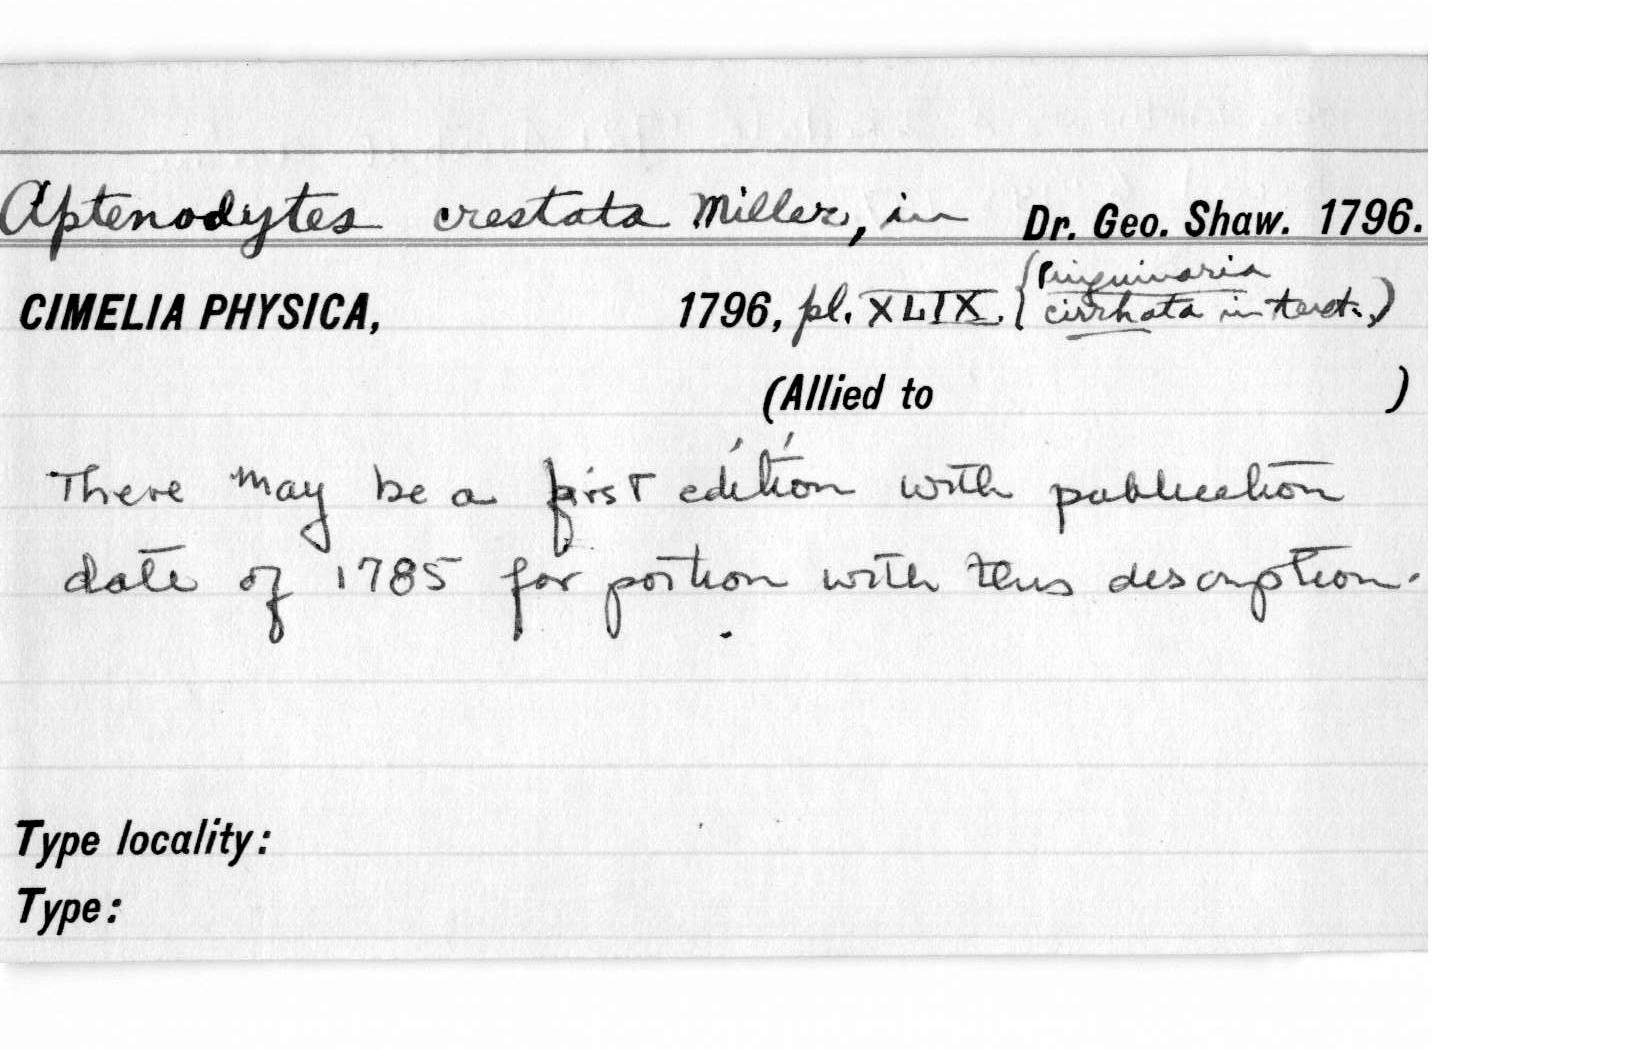 Aptenodytes crestata Miller, in Dr. Geo. Shaw. 1796.
CIMELIA PHYSICA, 1796, pl. XLIX. {Pinguinaria
cirrhata in text.)
(Allied to )
There may be a first edition with publication
date of 1785 for portion with this description.
Type locality:
Type: